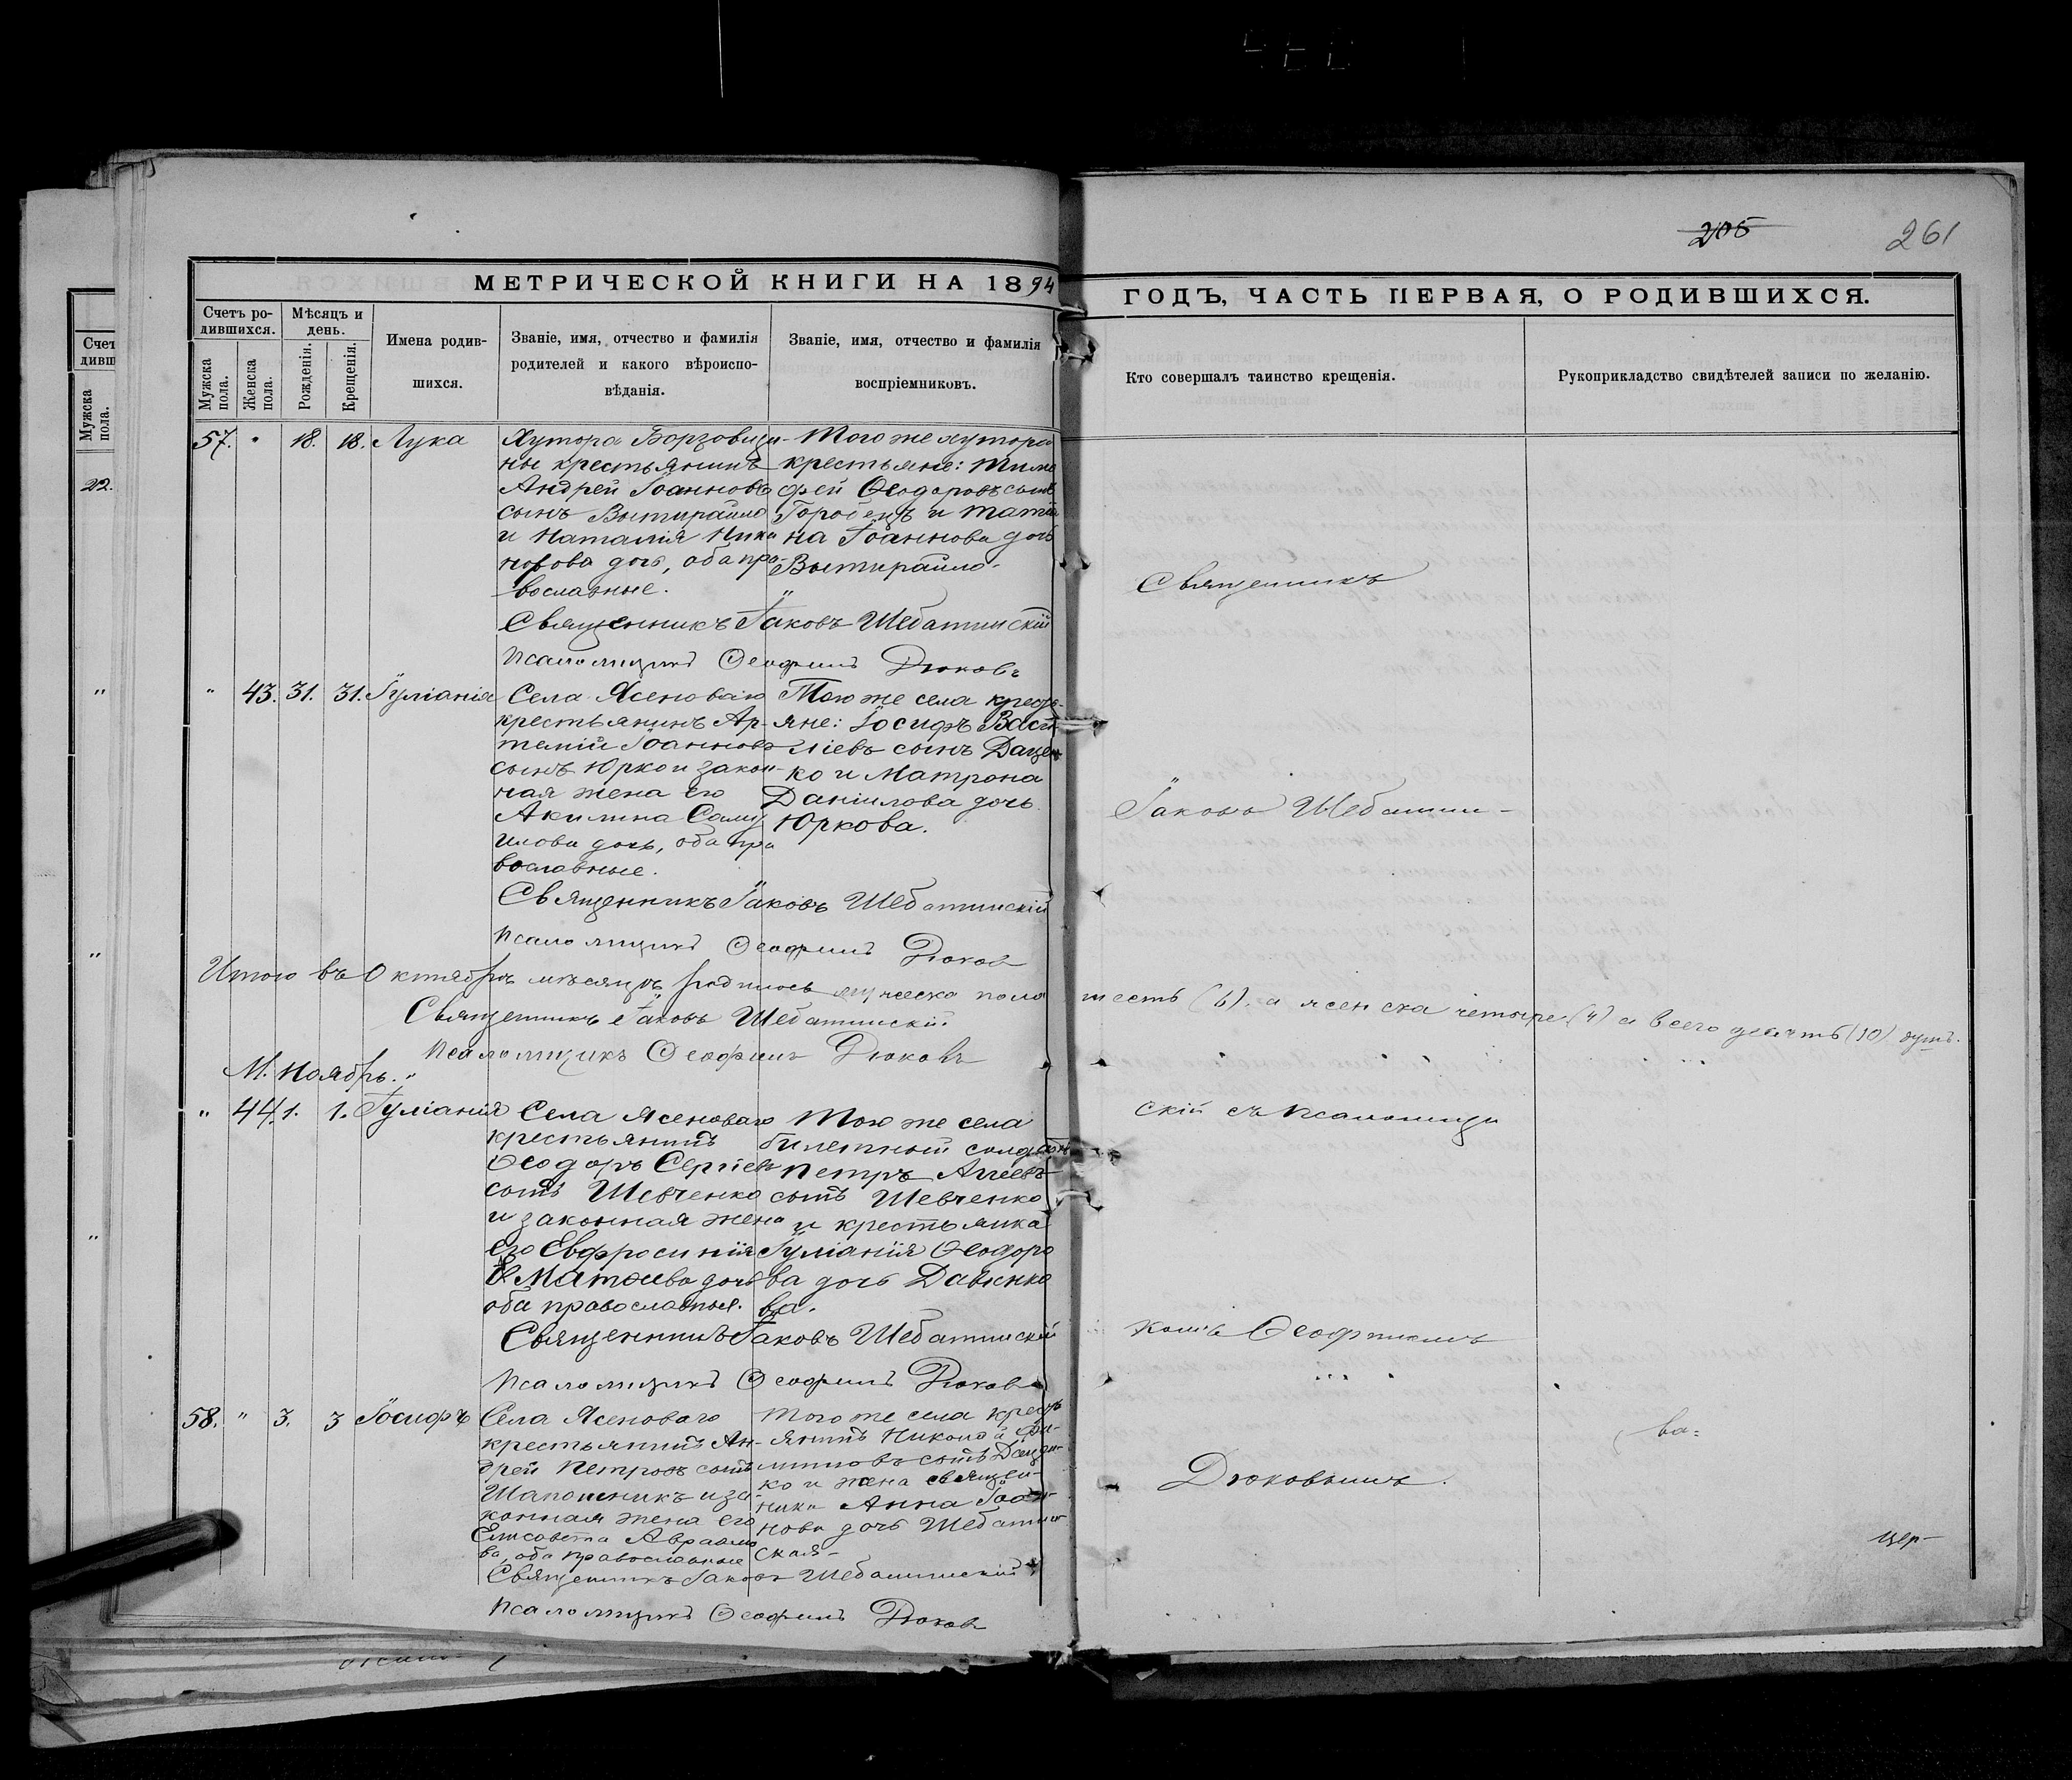 205
261
МЕТРИЧЕСКОЙ КНИГИ НА 1894
ГОДЪ, ЧАСТЬ ПЕРВАЯ, О РОДИВШИХСЯ.
Счетъ ро-
дившихся.
Мужска
пола.
Женска
пола.
Мѣсяцъ и
день.
Рожденія.
Крещенія.
Имена родив-
шихся.
Званіе, имя, отчество и фамилія
родителей и какого вѣроиспо-
вѣданія.
Званіе, имя, отчество и фамилія
воспріемниковъ.
Кто совершалъ таинство крещенія.
Рукоприкладство свидѣтелей записи по желанію.
Счет
дивш
Мужска
пола.
22.
57. " 18. 18. Лука
Хутора Борзовщи-
ны крестьянинъ
Андрей Іоанновъ
сынъ Вытирайло
и Наталія Ника
норова дочь, оба пра-
вославные.
Того же хутора
крестьяне: Тимо
фей Ѳеодоровъ сынъ
Городецъ и Татіа
на Іоаннова дочь
Вытирайло.
Священникъ Іаковъ Шебатинскій
Псаломщикъ Ѳеофилъ Дюковъ
" 43. 31. 31. Іуліанія
Села Ясеноваго
крестьянинъ Ар-
темій Іоанновъ
сынъ Юрко и закон-
ная жена его
Акилина Саму
илова дочь, оба пра
вославные.
Того же села кресть-
яне: Іосифъ Васи
ліевъ сынъ Дацен
ко и Матрона
Даніилова дочь
Юркова.
Священникъ Іаковъ Шебатинскій
Псаломщикъ Ѳеофилъ Дюковъ
Итого въ Октябрѣ мѣсяцѣ родилось мужеска пола шесть (6), а женска четыре (4) а всего десять (10) душъ.
Священникъ Іаковъ Шебатинскій
Псаломщикъ Ѳеофилъ Дюковъ
М. Ноябрь.
" 44. 1. 1. Іуліанія
Села Ясеноваго
крестьянинъ
Ѳеодоръ Сергіевъ
сынъ Шевченко
и законная жена
его Евфросинія
Матѳеева дочь
оба православные.
Того же села
билетный солдатъ
Петръ Аггеевъ
сынъ Шевченко
и крестьянка
Іуліанія Ѳеодоро
ва дочь Давиенко
ва.
Священникъ Іаковъ Шебатинскій
Псаломщикъ Ѳеофилъ Дюковъ
58. " 3. 3 Іосифъ
Села Ясеноваго
крестьянинъ Ан-
дрей Петровъ сынъ
Шапошникъ и за-
конная жена его
Елисавета Авраамо
ва, оба православные
Того же села кресть
янинъ Николай Фи-
липовъ сынъ Дацен-
ко и жена священ-
ника Анна Іоан-
нова дочь Шебатин-
ская-
Священникъ Іаковъ Шебатинскій
Псаломщикъ Ѳеофилъ Дюковъ
Священникъ
Іаковъ Шебатин-
скій съ псаломщи
комъ Ѳеофиломъ
Дюковымъ.
ва=
цер-